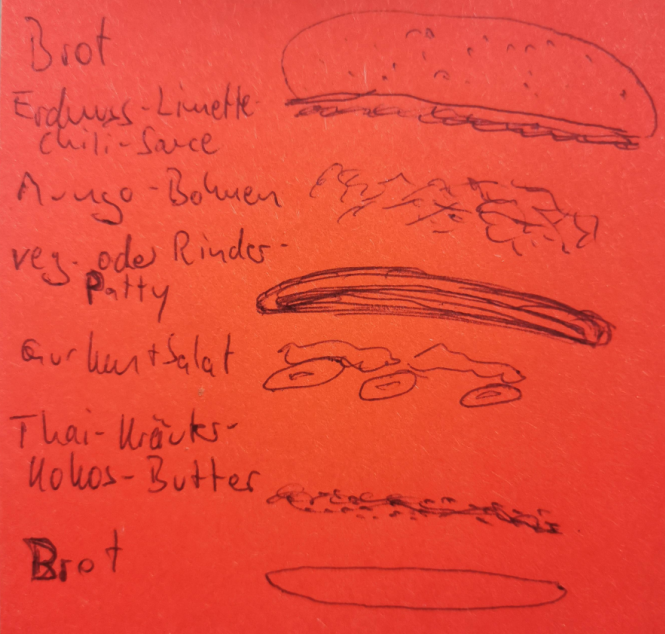 Brot
Erdnuss-Limette-
Chili-Sauce
Mungo-Bohnen
veg. oder Rinder-
Patty
Gurken+Salat
Thai-Kräuter-
Kokos-Butter
Brot